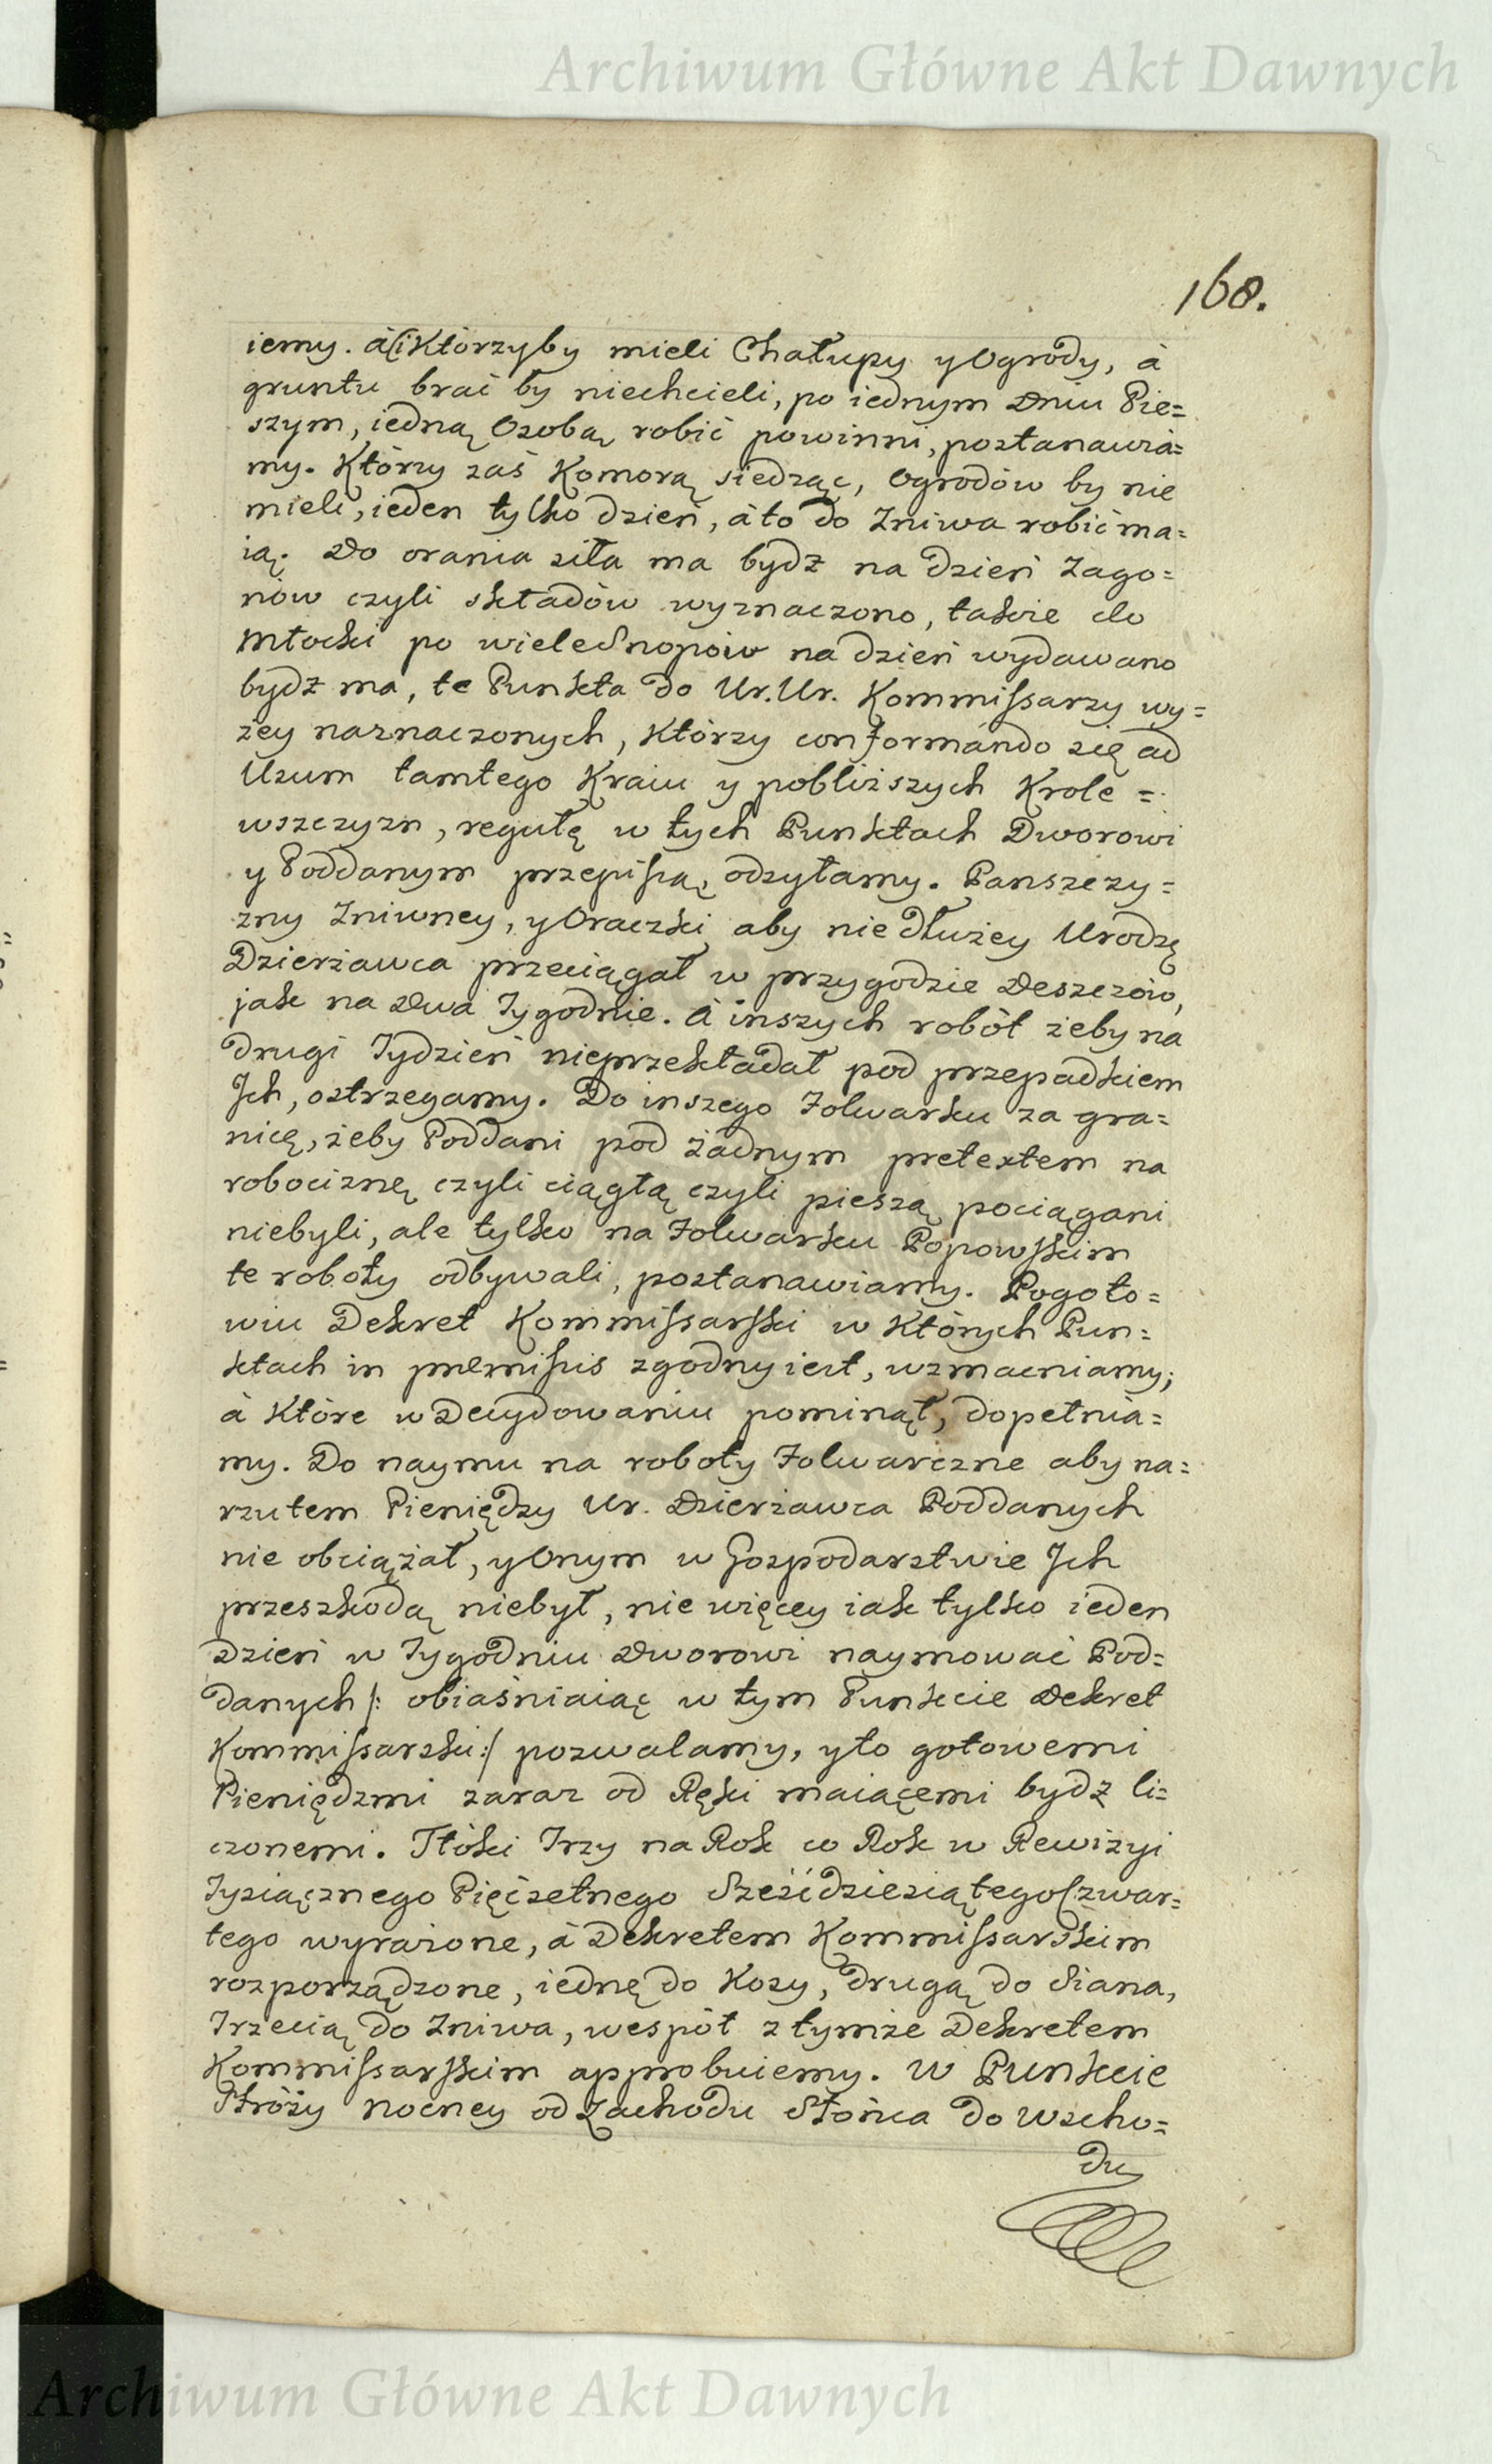 Archiwum Główne Akt Dawnych
168.
iemy. à Ci Którzyby mieli Chałupy y Ogrody, à
gruntu brać by niechcieli, po iednym Dniu Pie=
szym, iedną Osobą robić powinni, postanawia=
my. Którzy zaś Komorą siedząc, Ogrodów by nie
mieli, ieden tylko dzień, à to do Zniwa robić ma=
ią. Do orania siła ma bydz na dzień Zago=
nów czyli składów wyznaczono, takie do
Młocki po wiele Snopów na dzień wydawano
bydz ma, te Punkta do Ur. Ur. Kommissarzy wy=
żey naznaczonych, Którzy conformando się ad
Usum tamtego Kraiu y pobliższych Krole=
wszczyzn, regułę w tych Punktach Dworowi
y Poddanym przepiszą, odsyłamy. Panszczy=
zny Zniwney, y Oraczki aby nie dłużey Urodz.
Dzierżawca przeciągał w przygodzie Deszczów,
jak na Dwa Tygodnie. à inszych robót żeby na
drugi Tydzień nieprzekładał pod przepadkiem
Ich, ostrzegamy. Do inszego Folwarku za gra=
nicę, żeby Poddani pod żadnym pretextem na
robociznę czyli ciągłą czyli pieszą pociągani
niebyli, ale tylko na Folwarku Popowskim
te roboty odbywali, postanawiamy. Pogoto=
wiu Dekret Kommissarski w Których Pun=
ktach in premissis zgodny iest, wzmacniamy;
à Które w Decydowaniu pominął, dopełnia=
my. Do naymu na roboty Folwarczne aby na=
rzutem Pieniędzy Ur. Dzierżawca Poddanych
nie obciążał, y Onym w Gospodarstwie Ich
przeszkodą niebył, nie więcey iak tylko ieden
Dzień w Tygodniu Dworowi naymować Pod=
danych /: obiaśniaiąc w tym Punkcie Dekret
Kommissarski :/ pozwalamy, y to gotowemi
Pieniędzmi zaraz od Ręki maiącemi bydz li=
czonemi. Tłóki Trzy na Rok co Rok w Rewizyi
Tysiącznego Pięćsetnego Sześćdziesiątego Czwar=
tego wyrażone, à Dekretem Kommissarskim
rozporządzone, iednę do Kosy, drugą do Siana,
Trzecią do Zniwa, wespół z tymże Dekretem
Kommissarskim approbuiemy. W Punkcie
Stróży nocney od Zachodu Słońca do Wscho=
du
Archiwum Główne Akt Dawnych